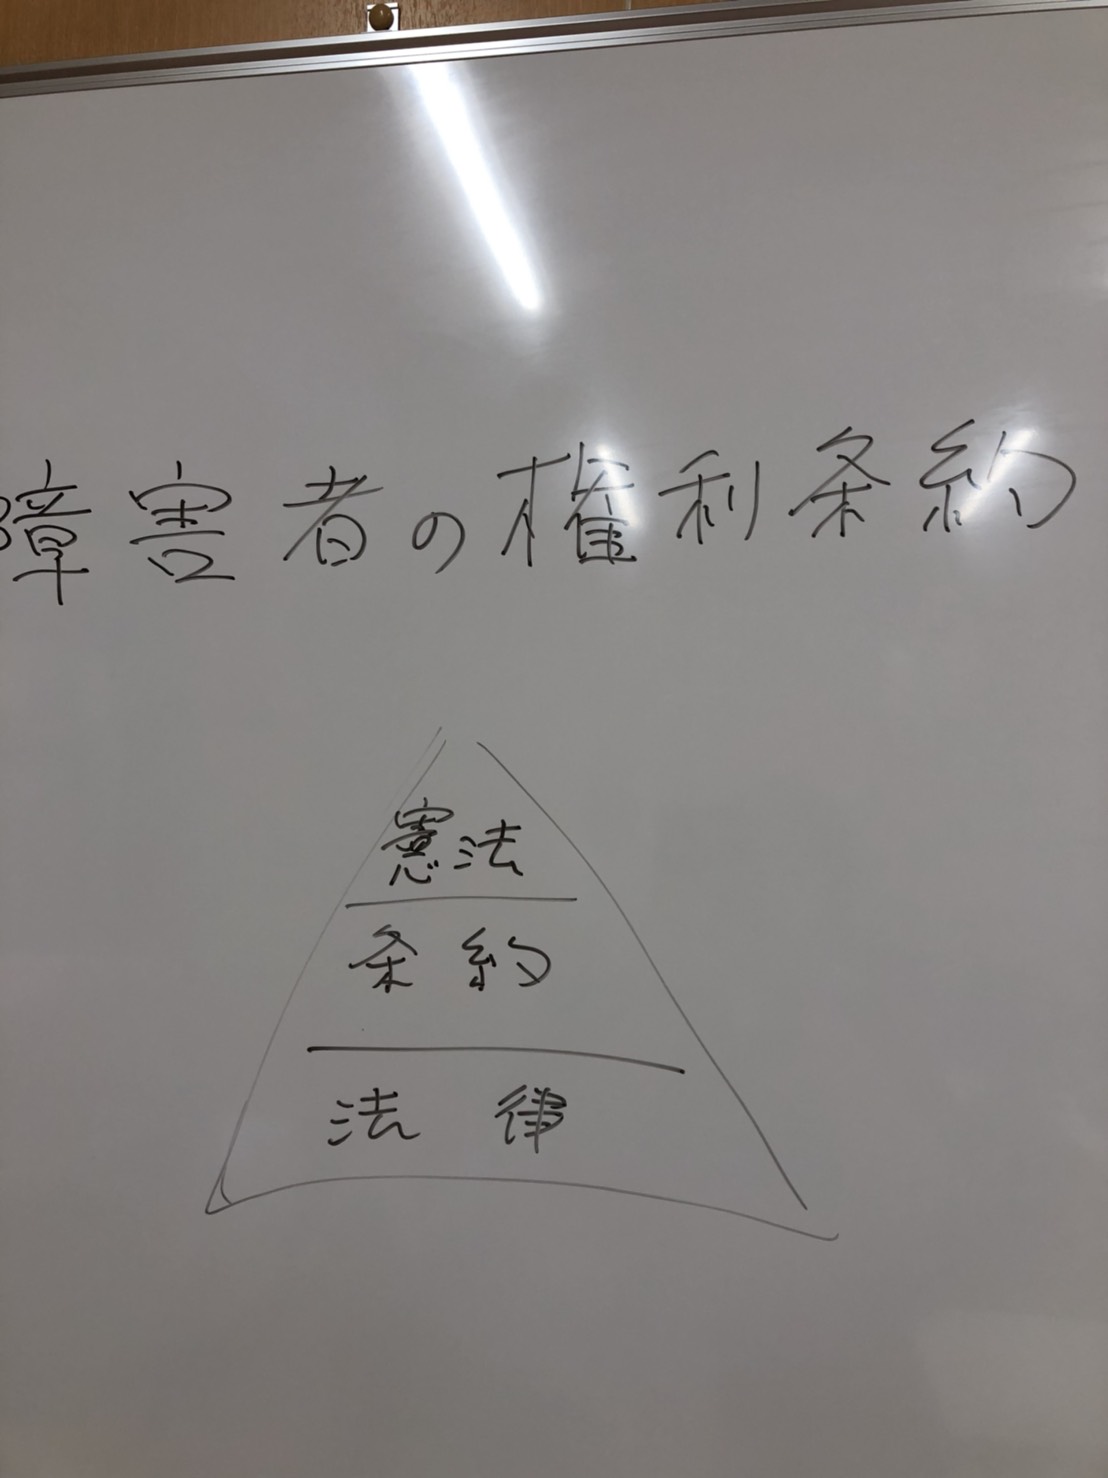 障害者の権利条約
憲法
条約
法律